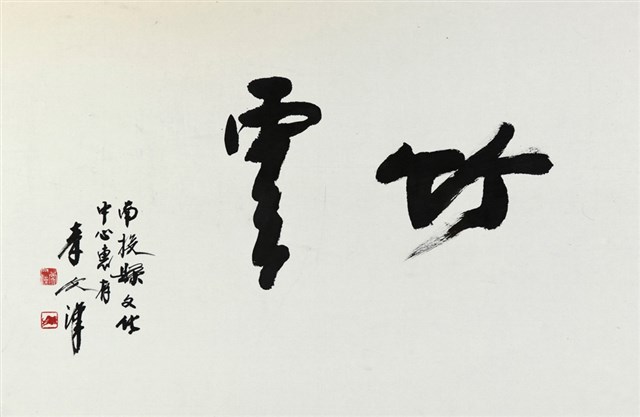 竹雲
南投縣文化
中心惠存
李文漢